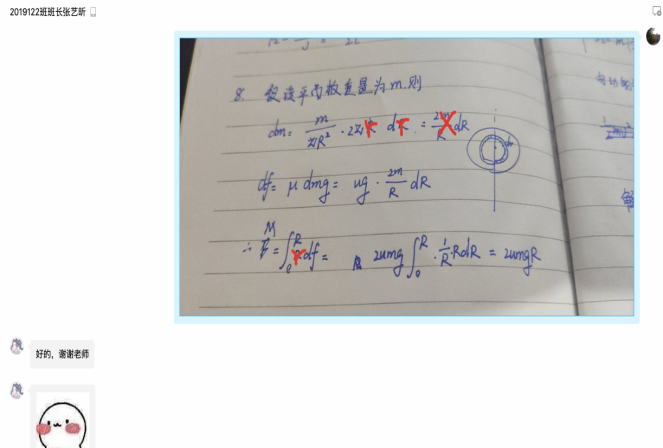 2019122班班长张艺昕
8. 假设平面板质量为m.则
dm = m/πR² · 2πr dr = 2m/R dR
df = μ dmg = μg · 2m/R dR
∴ M = ∫₀ᴿ r df = 2μmg ∫₀ᴿ · 1/R · R dR = 2μmgR
好的，谢谢老师